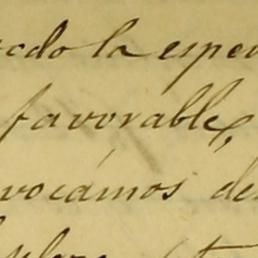 cdo la espe
favorable,
vocámos de